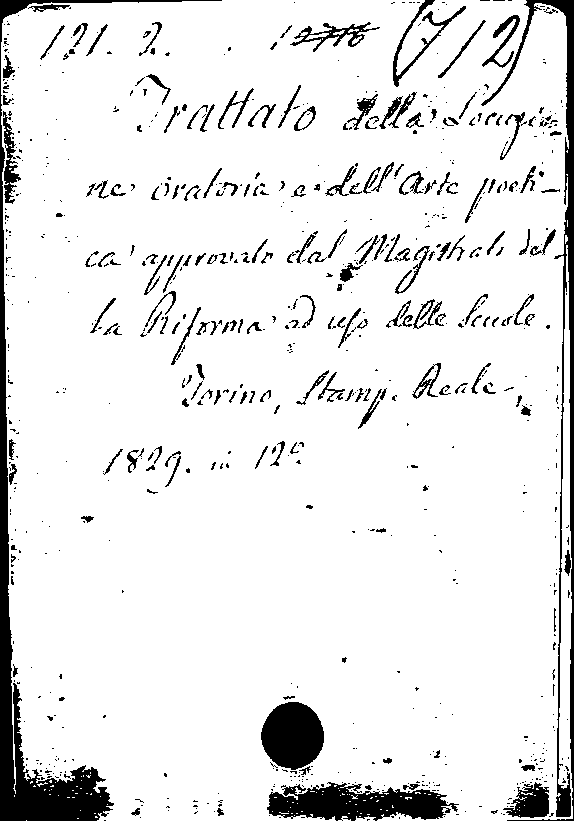 121. 2. (712)
Trattato della Locuzio-
ne oratoria e dell'Arte poeti-
ca approvato dal Magistrato del-
la Riforma ad uso delle Scuole.
Torino, Stamp. Reale,
1829. in 12°.